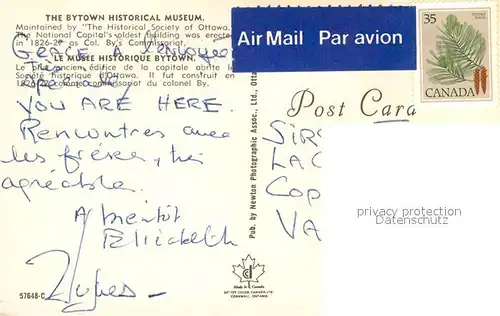 THE BYTOWN HISTORICAL MUSEUM.
Maintained by "The Historical Society of Ottawa."
The National Capital's oldest building was erected
in 1826-27 as Col. By's Commissariat.
LE MUSÉE HISTORIQUE BYTOWN.
Le plus ancien édifice de la capitale abrite la
Société historique d'Ottawa. Il fut construit en
1826-27 comme commissariat du colonel By.
GRÂCE A
YOU ARE HERE.
Rencontres avec
les frères, très
agréable.
A bientôt
Elisabeth
57648-C
Pub. by Newton Photographic Assoc., Ltd., Otta
Air Mail Par avion
35
CANADA
Post Card
SIR
LAC
COP
VA
privacy protection
oldthing.com
Made in Canada
CORNWALL, ONTARIO